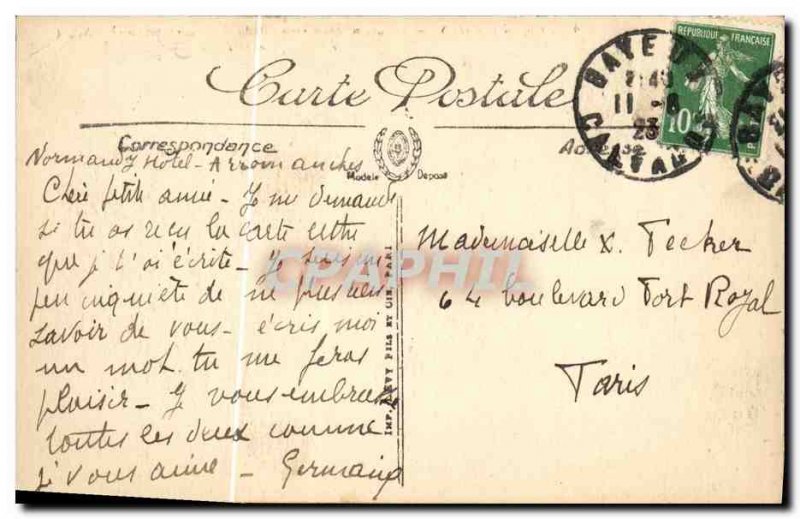 Carte Postale
Correspondance
Modèle Déposé
REPUBLIQUE FRANÇAISE
10
BAYEUX
11 -8
23
CALVADOS
Normandy Hotel - Arromanches
Chère petite amie - Je me demande
si tu as reçu la carte lettre
que je t'ai écrite - Je suis un
peu inquiète de ne plus rien
savoir de vous - écris moi
un mot tu me feras
plaisir - Je vous embrasse
toutes les deux comme
je vous aime - Germaine
Mademoiselle X. Fecker
64 boulevard Port Royal
Paris
IMP. LEVY FILS ET CIE, PARIS
CPAPHIL